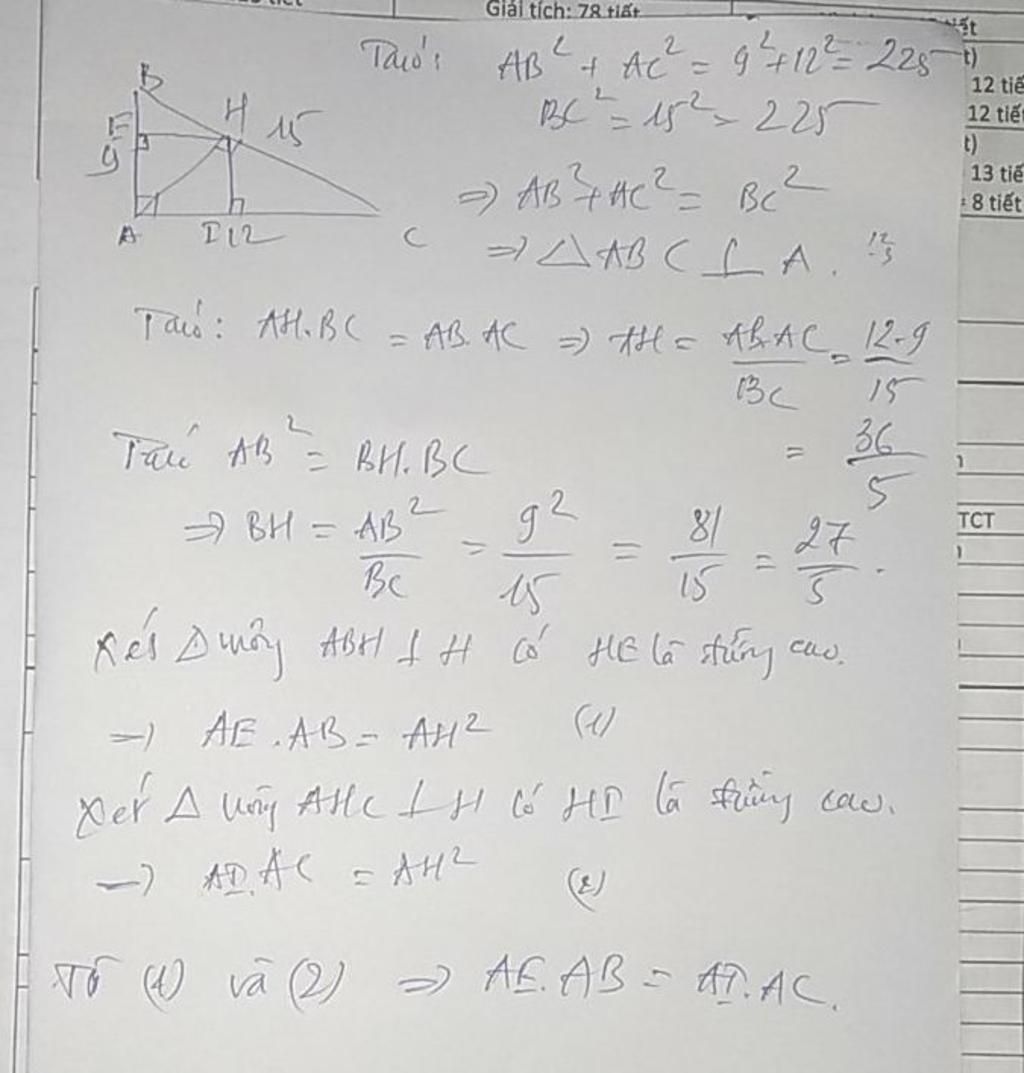 Giải tích: 78 tiết
Ta có: AB² + AC² = 9² + 12² = 225
BC² = 15² = 225
⇒ AB² + AC² = BC²
⇒ △ABC ⊥ A.
B
E
H
15
9
A
I
12
C
Ta có: AH.BC = AB.AC ⇒ AH = AB.AC/BC = 12.9/15
= 36/5
Ta có AB² = BH.BC
⇒ BH = AB²/BC = 9²/15 = 81/15 = 27/5.
Xét △ vuông ABH ⊥ H có HE là đường cao.
→ AE.AB = AH² (1)
Xét △ vuông AHC ⊥ H có HI là đường cao.
→ AI.AC = AH² (2)
Từ (1) và (2) ⇒ AE.AB = AI.AC.
t)
12 tiế
12 tiết
t)
13 tiế
8 tiết
TCT